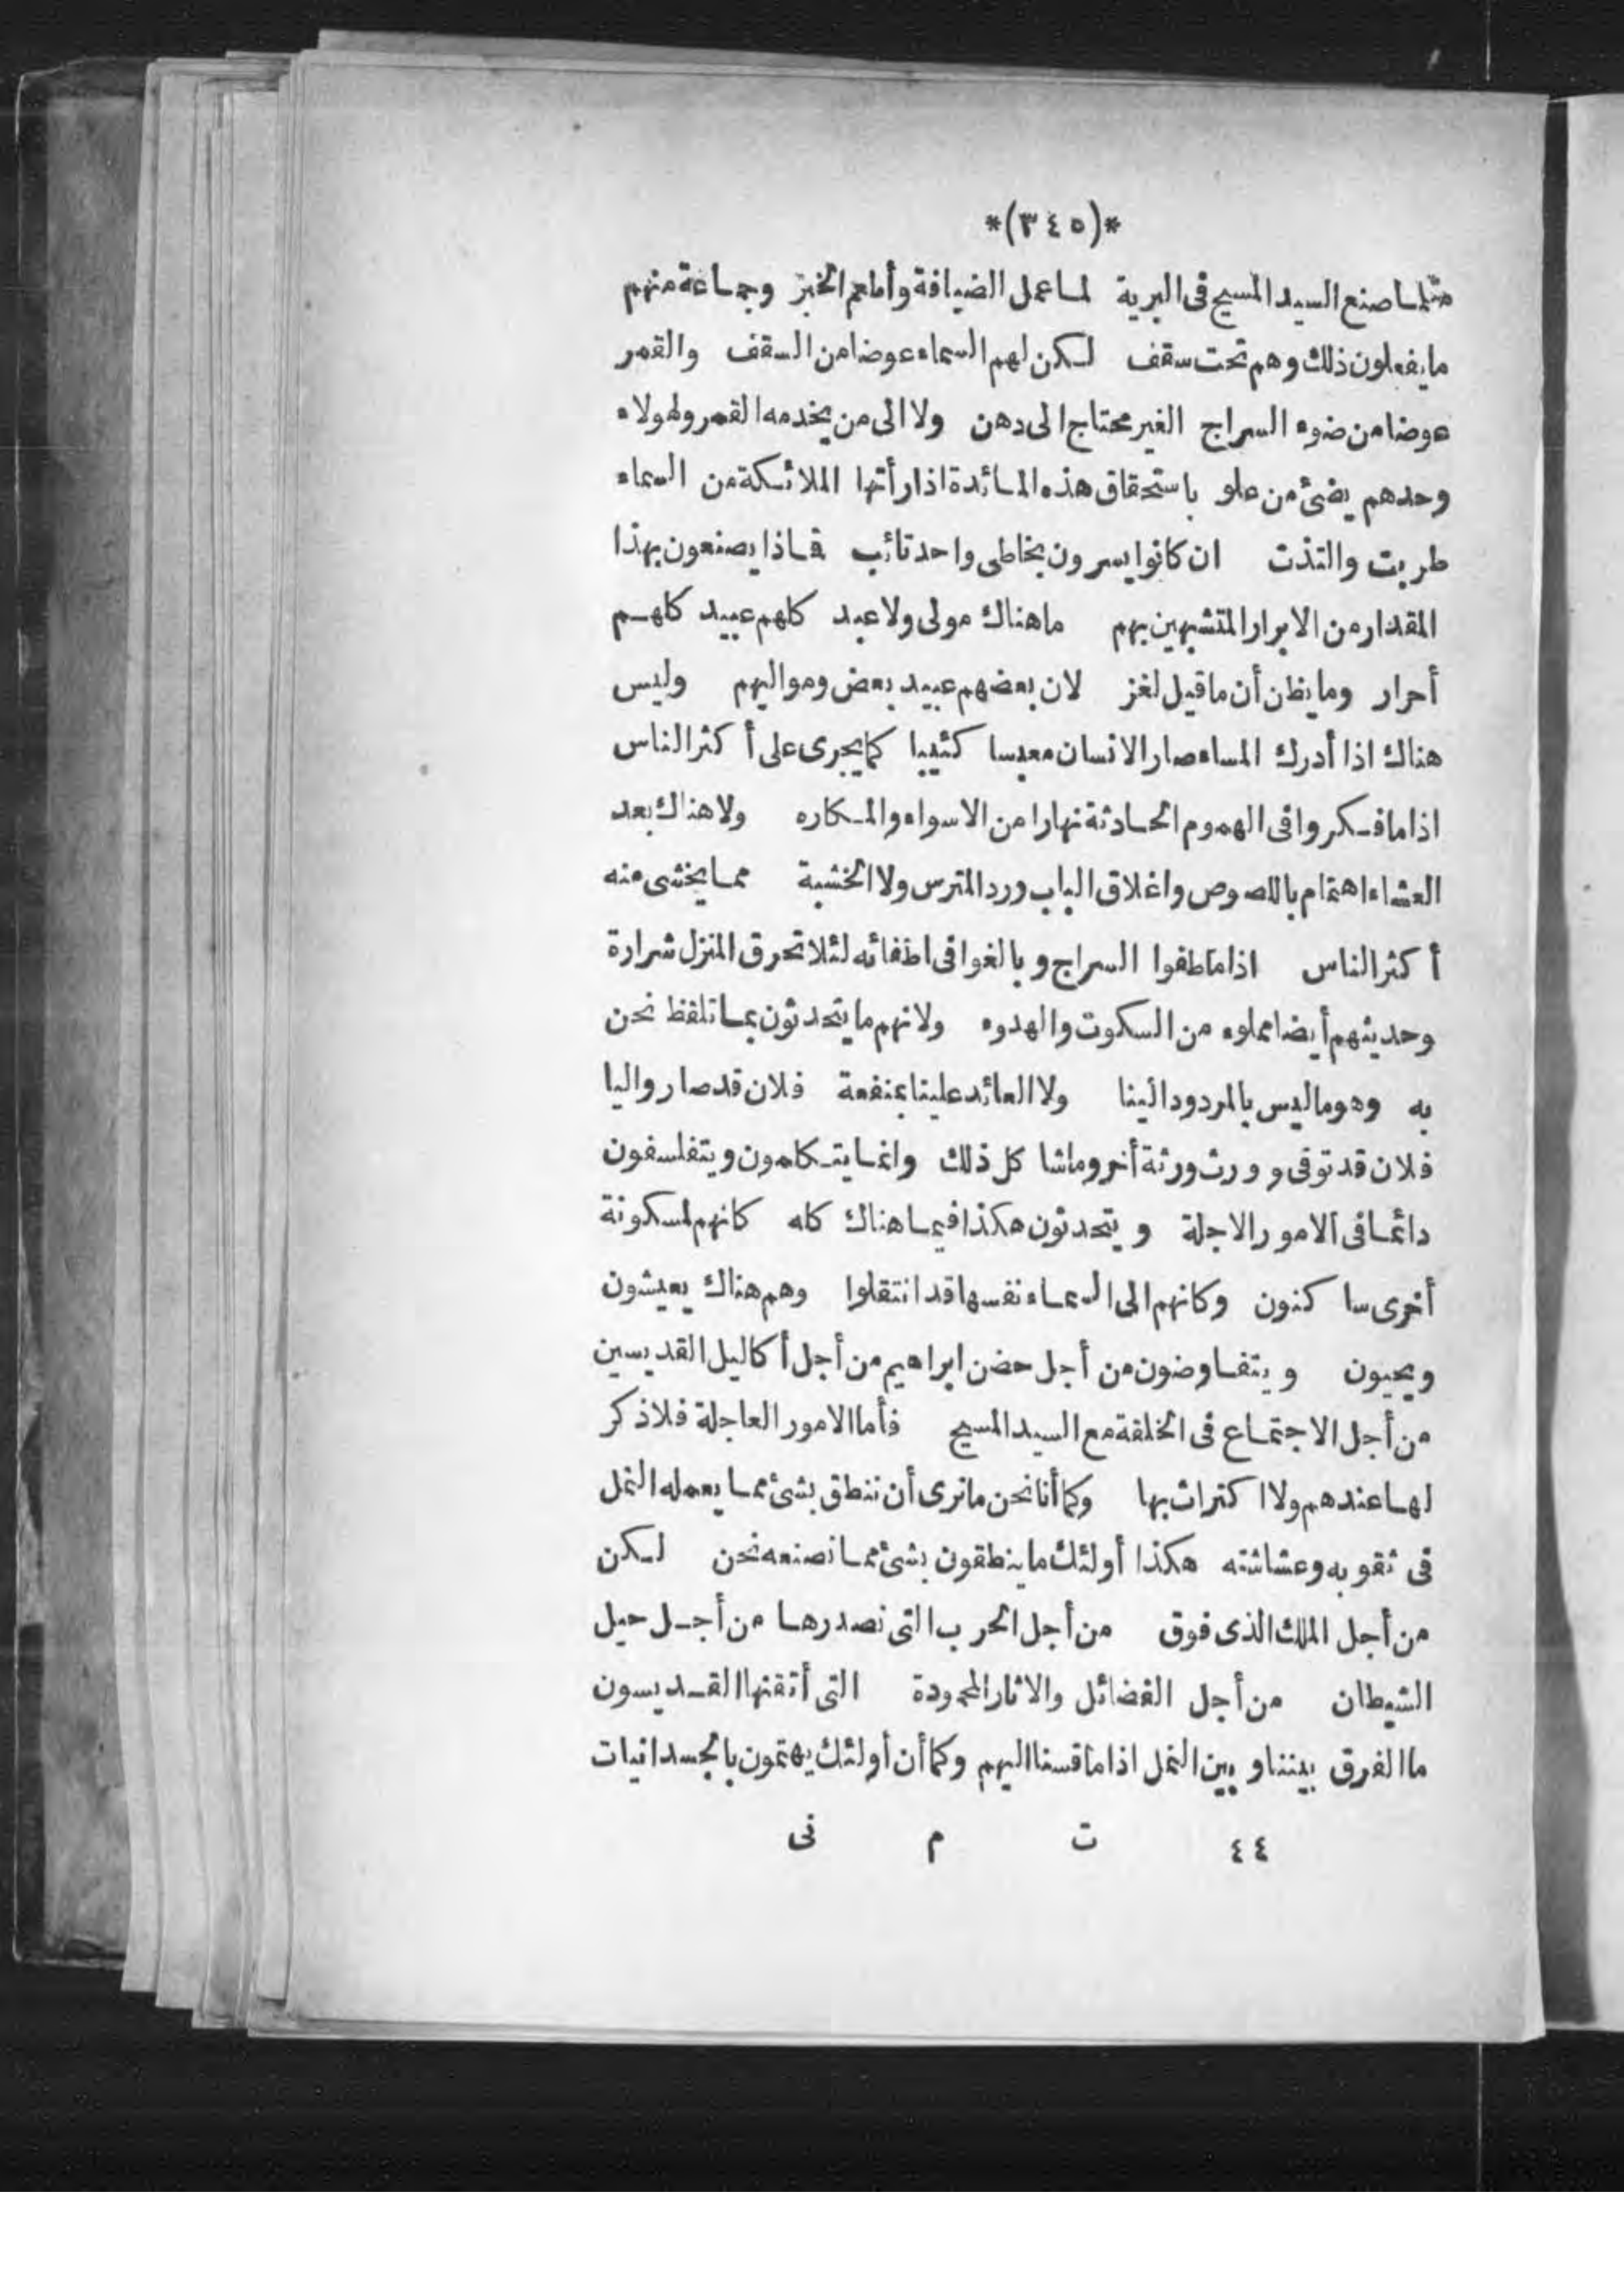 *(٣٤٥)*
مثلما صنع السيد المسيح فى البرية لما عمل الضيافة وأطعم الخبز وجماعة منهم
ما يفعلون ذلك وهم تحت سقف لكن لهم السماء عوضا من السقف والقمر
عوضا من ضوء السراج الغير محتاج الى دهن ولا الى من يخدمه القمر ولهولاء
وحدهم يضئ من علو باستحقاق هذه المائدة اذا رأتها الملائكة من السماء
طربت والتذت ان كانوا يسرون بخاطى واحد تائب فماذا يصنعون بهذا
المقدار من الابرار المتشبهين بهم ما هناك مولى ولا عبد كلهم عبيد كلهم
أحرار وما يظن أن ما قيل لغز لان بعضهم عبيد بعض ومواليهم وليس
هناك اذا أدرك المساء صار الانسان معبسا كئيبا كما يجرى على أكثر الناس
اذا ما فكروا فى الهموم الحادثة نهارا من الاسواء والمكاره ولا هناك بعد
العشاء اهتمام باللصوص واغلاق الباب ورد المترس ولا الخشبة مما يخشى منه
أكثر الناس اذا ما طفوا السراج وبالغوا فى اطفائه لئلا تحرق المنزل شرارة
وحديثهم أيضا مملوء من السكوت والهدوء ولانهم ما يتحدثون بما نلفظ نحن
به وهو ما ليس بالمردود الينا ولا العائد علينا بمنفعة فلان قد صار واليا
فلان قد توفى وورث ورثة أخر وماشا كل ذلك وانما يتكلمون ويتفلسفون
دائما فى الامور الاجلة ويتحدثون هكذا فيما هناك كله كانهم لمسكونة
أخرى ساكنون وكانهم الى السماء نفسها قد انتقلوا وهم هناك يعيشون
ويحيون ويتفاوضون من أجل حضن ابراهيم من أجل أكاليل القديسين
من أجل الاجتماع فى الخلقة مع السيد المسيح فأما الامور العاجلة فلا ذكر
لها عندهم ولا اكتراث بها وكما أنا نحن ما نرى أن ننطق بشئ مما يعمله النمل
فى ثقوبه وعشاشته هكذا أولئك ما ينطقون بشئ مما نصنعه نحن لكن
من أجل الملك الذى فوق من أجل الحرب التى نصدرها من أجل حيل
الشيطان من أجل الفضائل والاثار المحمودة التى أتقنها القديسون
ما الفرق بيننا وبين النمل اذا ما قسنا اليهم وكما أن أولئك يهتمون بالجسدانيات
٤٤ ت م نى